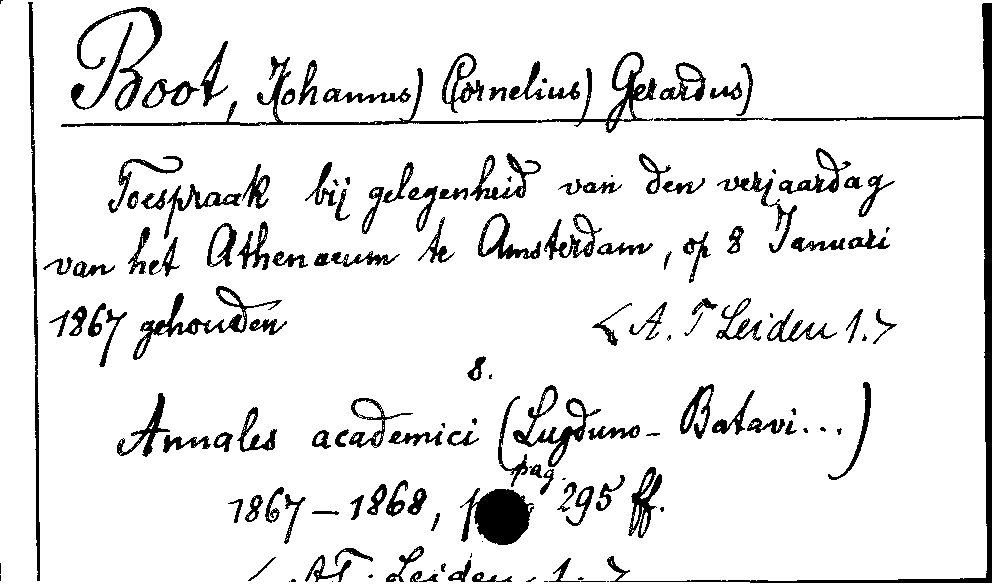 Boot, J(ohannes) C(ornelius) G(erardus)
Toespraak bij gelegenheid van den verjaardag
van het Athenaeum te Amsterdam, op 8 Januari
1867 gehouden <A. T Leiden 1.>
8.
Annales academici (Lugduno-Batavi...)
pag.
1867-1868, 295 ff.
<AT. Leiden. 1.>